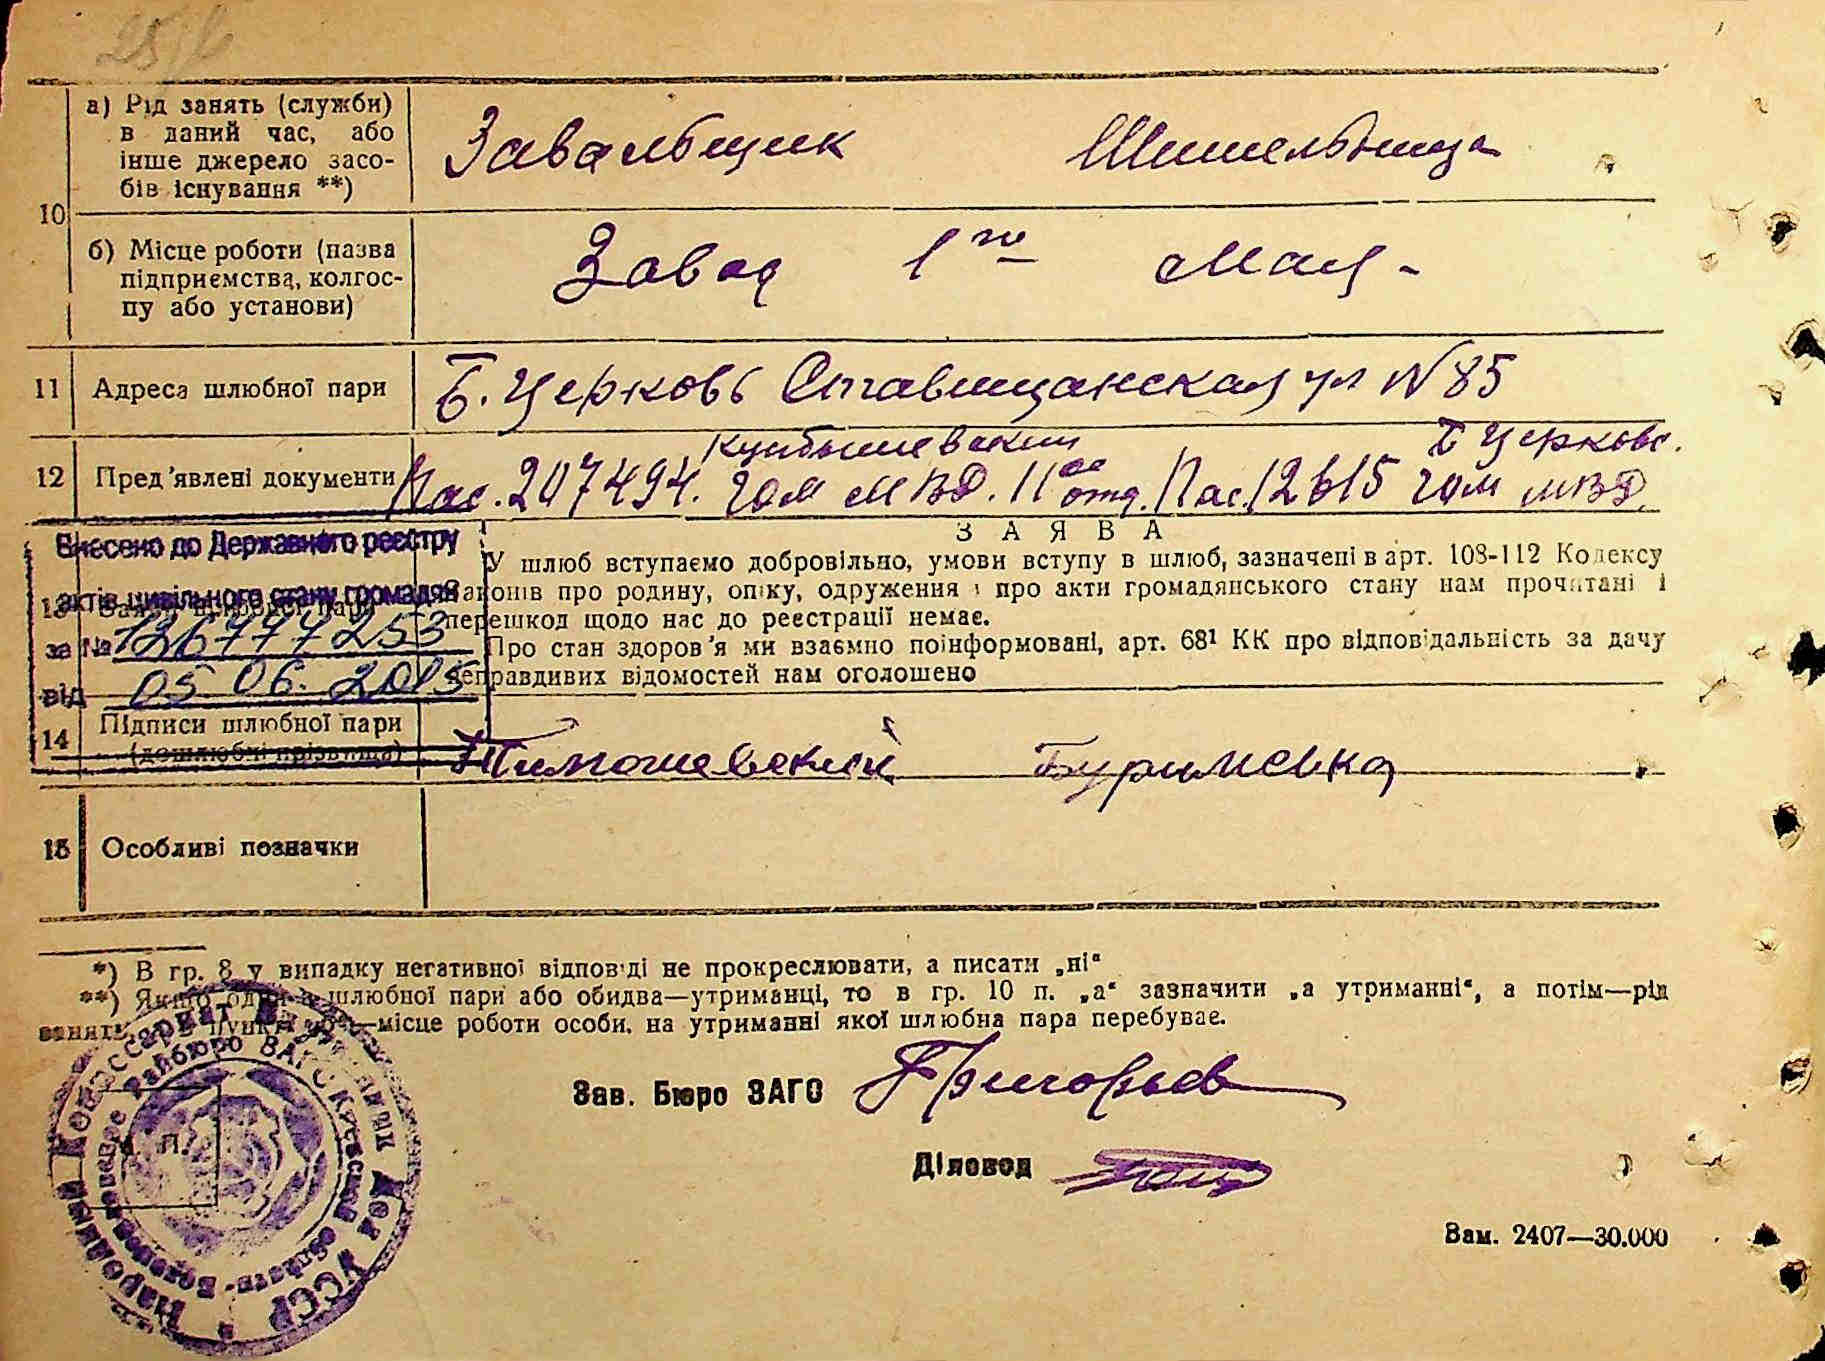 10
а) Рід занять (служби)
в даний час, або
інше джерело засо-
бів існування **)
Завальбщик Шишельбница
б) Місце роботи (назва
підприємства, колгос-
пу або установи)
Завод 1го Мая -
11 Адреса шлюбної пари
Б. Церковь Ставищанская ул N 85
12 Пред'явлені документи
Куйбышевским Б Церковс.
Пас. 207494. ГОМ МВД. 11ое отд. Пас. 12615 ГОМ МВД
ЗАЯВА
У шлюб вступаємо добровільно, умови вступу в шлюб, зазначені в арт. 108-112 Кодексу
Законів про родину, опіку, одруження і про акти громадянського стану нам прочитані і
перешкод щодо нас до реєстрації немає.
Про стан здоров'я ми взаємно поінформовані, арт. 68¹ КК про відповідальність за дачу
неправдивих відомостей нам оголошено
Внесено до Державного реєстру
актів цивільного стану громадян
13
за №
від 05. 06. 2015
14 Підписи шлюбної пари
(дошлюбні прізвища)
Тимошевский Буримська
15 Особливі позначки
*) В гр. 8 у випадку негативної відповіді не прокреслювати, а писати „ні“
**) Якщо один з шлюбної пари або обидва—утриманці, то в гр. 10 п. „а“ зазначити „а утриманні“, а потім—рід
занять, в пункті —місце роботи особи, на утриманні якої шлюбна пара перебуває.
Зав. Бюро ЗАГС Григорьев
Діловод
М. П.
Народний Комиссариат Внутренних Дел УССР
Райбюро ЗАГС Киевской области
Зам. 2407—30.000